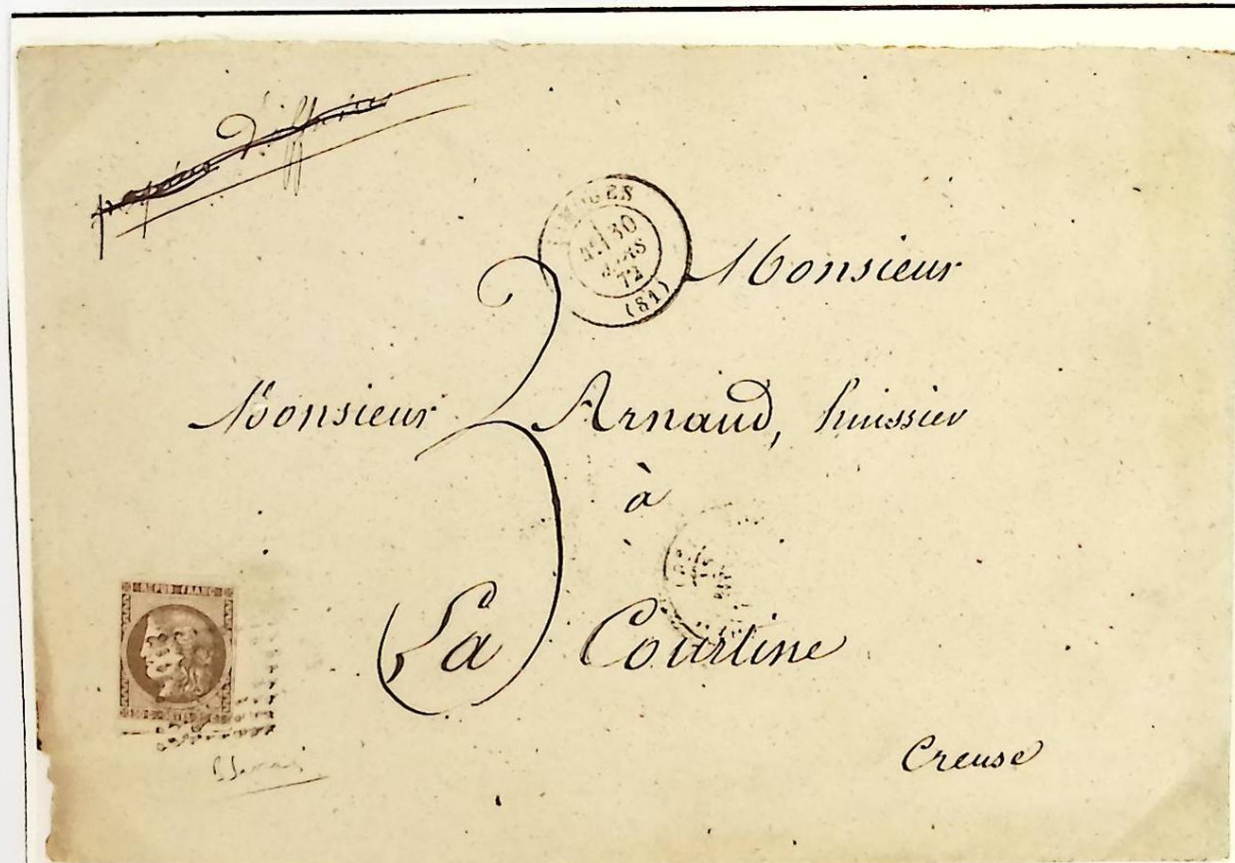 papiers d'affaires
LIMOGES
30
MARS
72
(81)
3
Monsieur
Monsieur Arnaud, huissier
à
La Courtine
REPUB·FRANC
Creuse